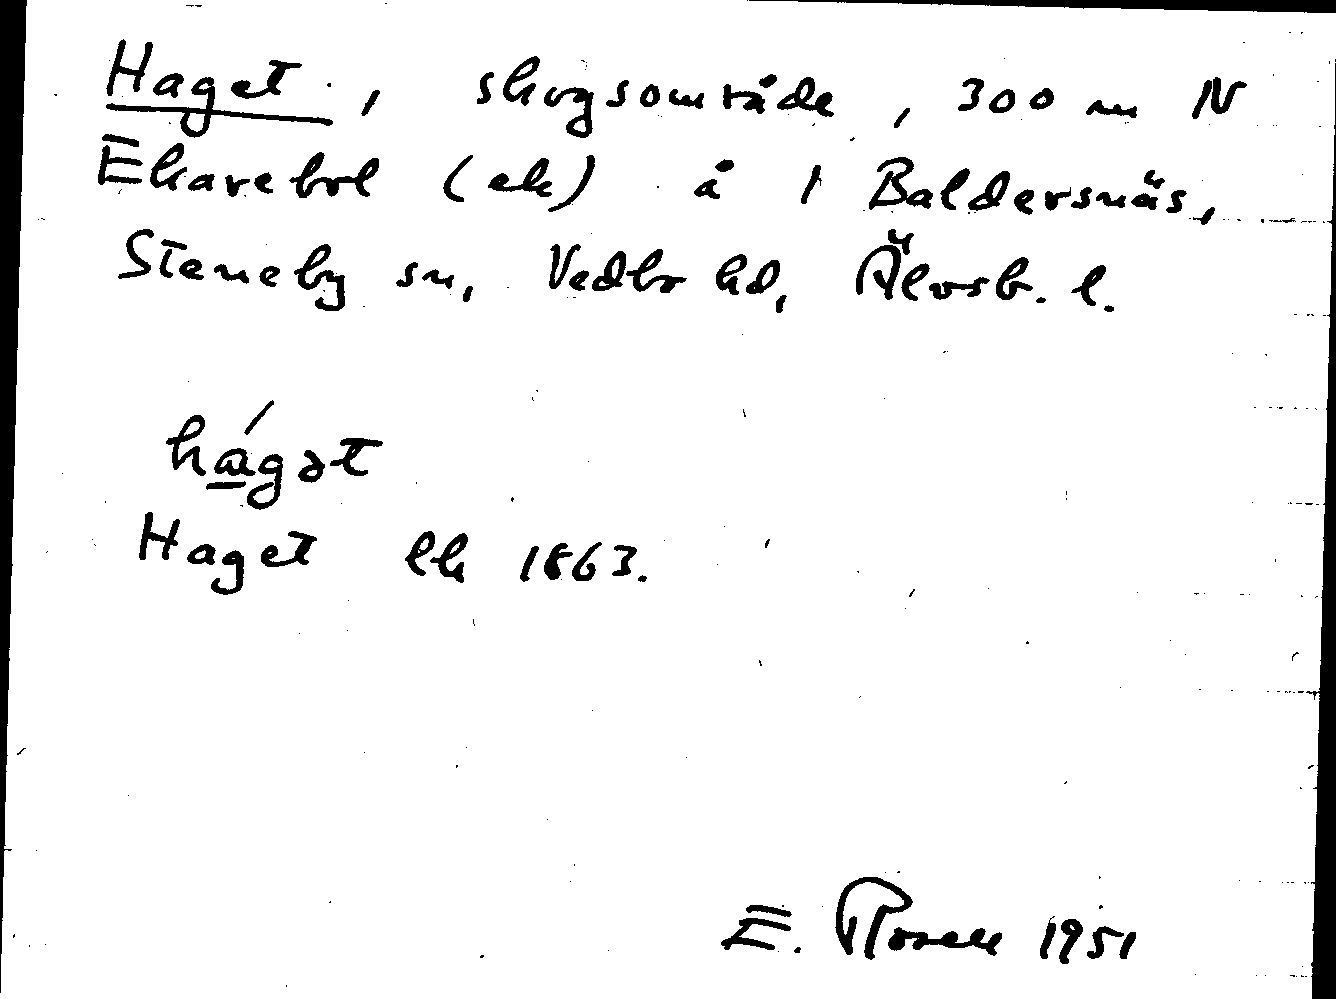 Haget, skogsområde, 300 m N
Ekarebol (ek) å 1 Baldersnäs,
Steneby sn, Vedbo hd, Älvsb. l.
há̱gət
Haget lk 1863.
E. Rosell 1951